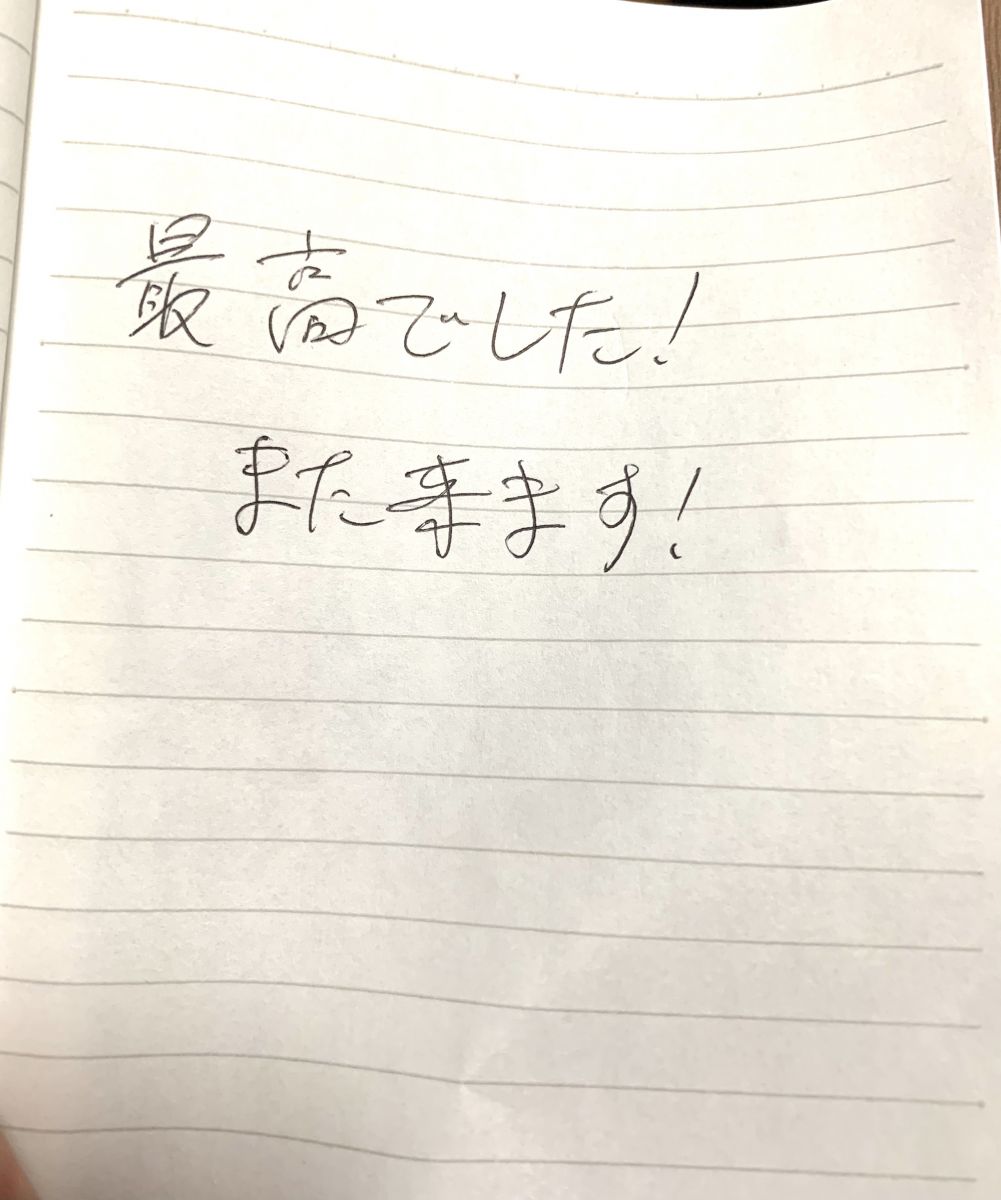 最高でした!
また来ます!